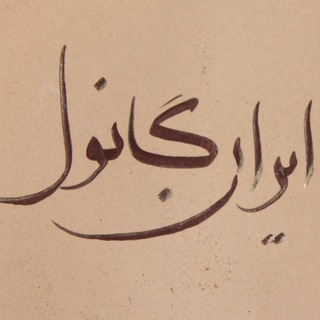 ایران گانول